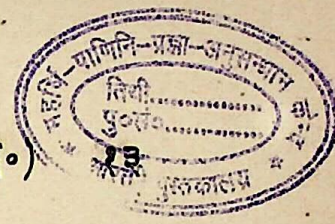 महर्षि-पाणिनि-प्रज्ञा-अनुसन्धान
तिथी..................
पु०सं०..................
१३
पुस्तकालय
०)